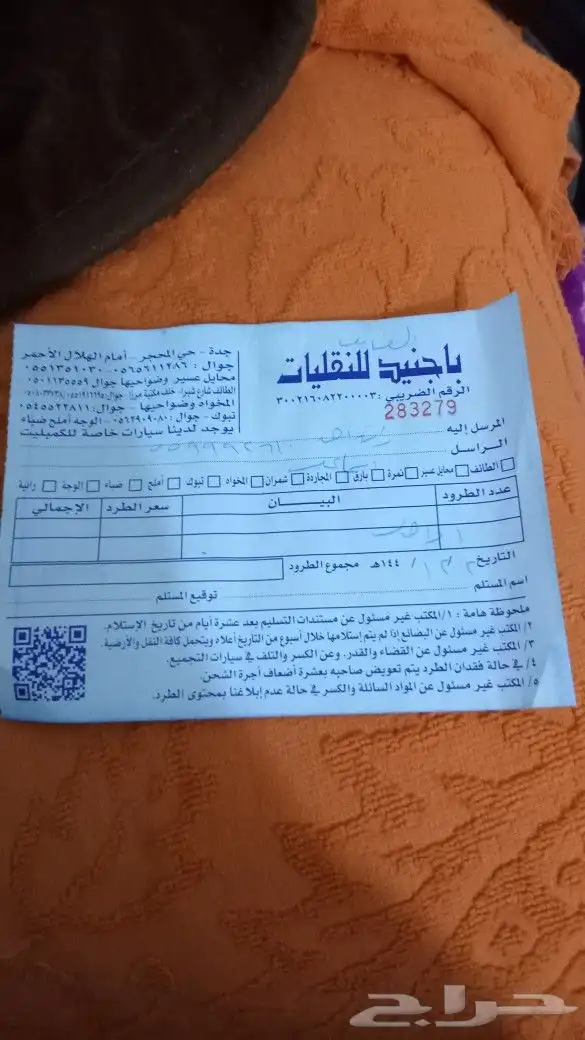 باجنيد للنقليات
الرقم الضريبي : ٣٠٠٢١٦٠٨٢٢٠٠٠٠٣
283279
جدة - حي المحجر - أمام الهلال الأحمر
جوال : ٠٥٦٥٦١١٢٨٦ - ٠٥٥١٣٥١٠٣٠
محايل عسير وضواحيها جوال ٠٥٠١١٣٥٥٥٩
الطائف شارع شبرا - خلف مكتبة مرزا - جوال:
المخواه وضواحيها - جوال: ٠٥٤٥٥٢٢٨١١
تبوك - جوال: ٠٥٦٢٩٠٩٠٨٠ - الوجه أملج ضباء
يوجد لدينا سيارات خاصة للكميليت
المرسل إليه
الراسل
الطائف محايل عسير نمرة بارق المجاردة شمران المخواه تبوك أملج ضباء الوجه رانية
عدد الطرود البيـــان سعر الطرد الإجمالي
التاريخ / / ١٤٤هـ مجموع الطرود
اسم المستلم توقيع المستلم
ملحوظة هامة : ١/ المكتب غير مسئول عن مستندات التسليم بعد عشرة أيام من تاريخ الإستلام.
٢/ المكتب غير مسئول عن البضائع إذا لم يتم إستلامها خلال أسبوع من التاريخ أعلاه ويتحمل كافة النقل والأرضية.
٣/ المكتب غير مسئول عن القضاء والقدر. وعن الكسر والتلف في سيارات التجميع.
٤/ في حالة فقدان الطرد يتم تعويض صاحبه بعشرة أضعاف أجرة الشحن.
٥/ المكتب غير مسئول عن المواد السائلة والكسر في حالة عدم إبلاغنا بمحتوى الطرد.
حراج